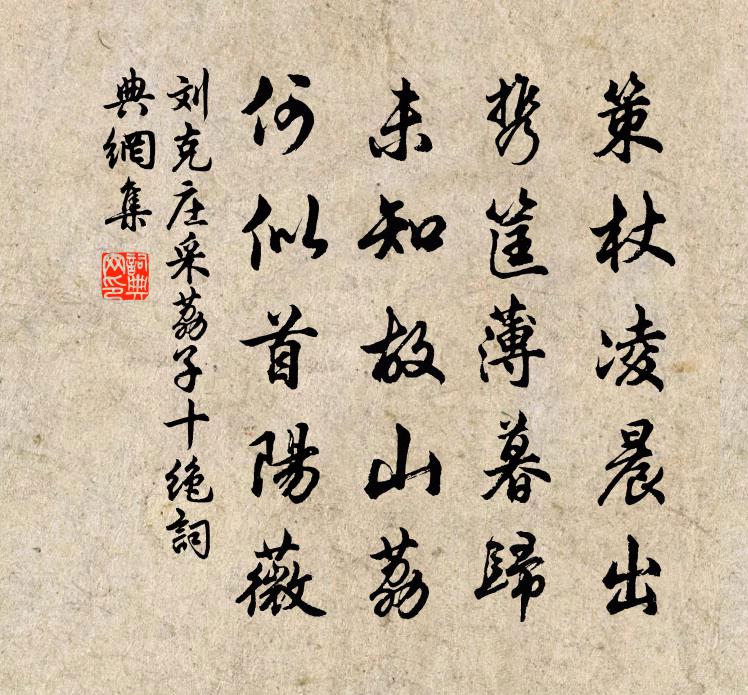 策杖凌晨出
携筐薄暮歸
未知故山荔
何似首陽薇
刘克庄采荔子十绝詞
典網集
詞典
网印